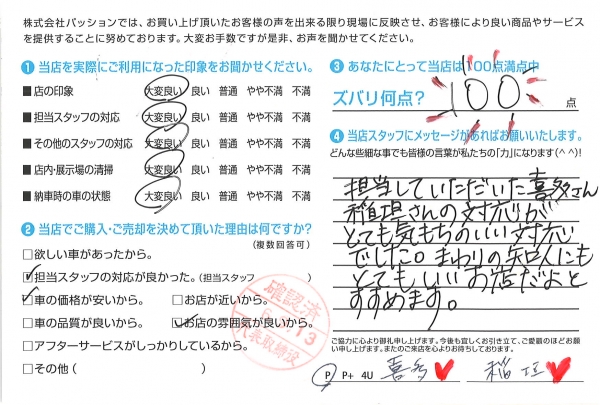 株式会社パッションでは、お買い上げ頂いたお客様の声を出来る限り現場に反映させ、お客様により良い商品やサービス
を提供することに努めております。大変お手数ですが是非、お声を聞かせてください。
1 当店を実際にご利用になった印象をお聞かせください。
■店の印象 大変良い 良い 普通 やや不満 不満
■担当スタッフの対応 大変良い 良い 普通 やや不満 不満
■その他のスタッフの対応 大変良い 良い 普通 やや不満 不満
■店内・展示場の清掃 大変良い 良い 普通 やや不満 不満
■納車時の車の状態 大変良い 良い 普通 やや不満 不満
2 当店でご購入・ご売却を決めて頂いた理由は何ですか?
(複数回答可)
□欲しい車があったから。
☑担当スタッフの対応が良かった。(担当スタッフ
☑車の価格が安いから。 □お店が近いから。
□車の品質が良いから。 ☑お店の雰囲気が良いから。
□アフターサービスがしっかりしているから。
□その他( )
確認済
13
代表取締役
3 あなたにとって当店は100点満点中
ズバリ何点? 100 点
4 当店スタッフにメッセージがあればお願いいたします。
どんな些細な事でも皆様の言葉が私たちの「力」になります(^^)!
担当していただいた喜多さん
稲垣さんの対応が
とても気もちのいい対応
でした。まわりの知人にも
とてもいいお店だよと
すすめます。
ご協力に心より御礼申し上げます。今後も宜しくお引き立て、ご愛顧のほどお願
い申し上げます。またのご来店を心よりお待ちしております。
P P+ 4U 喜多 稲垣